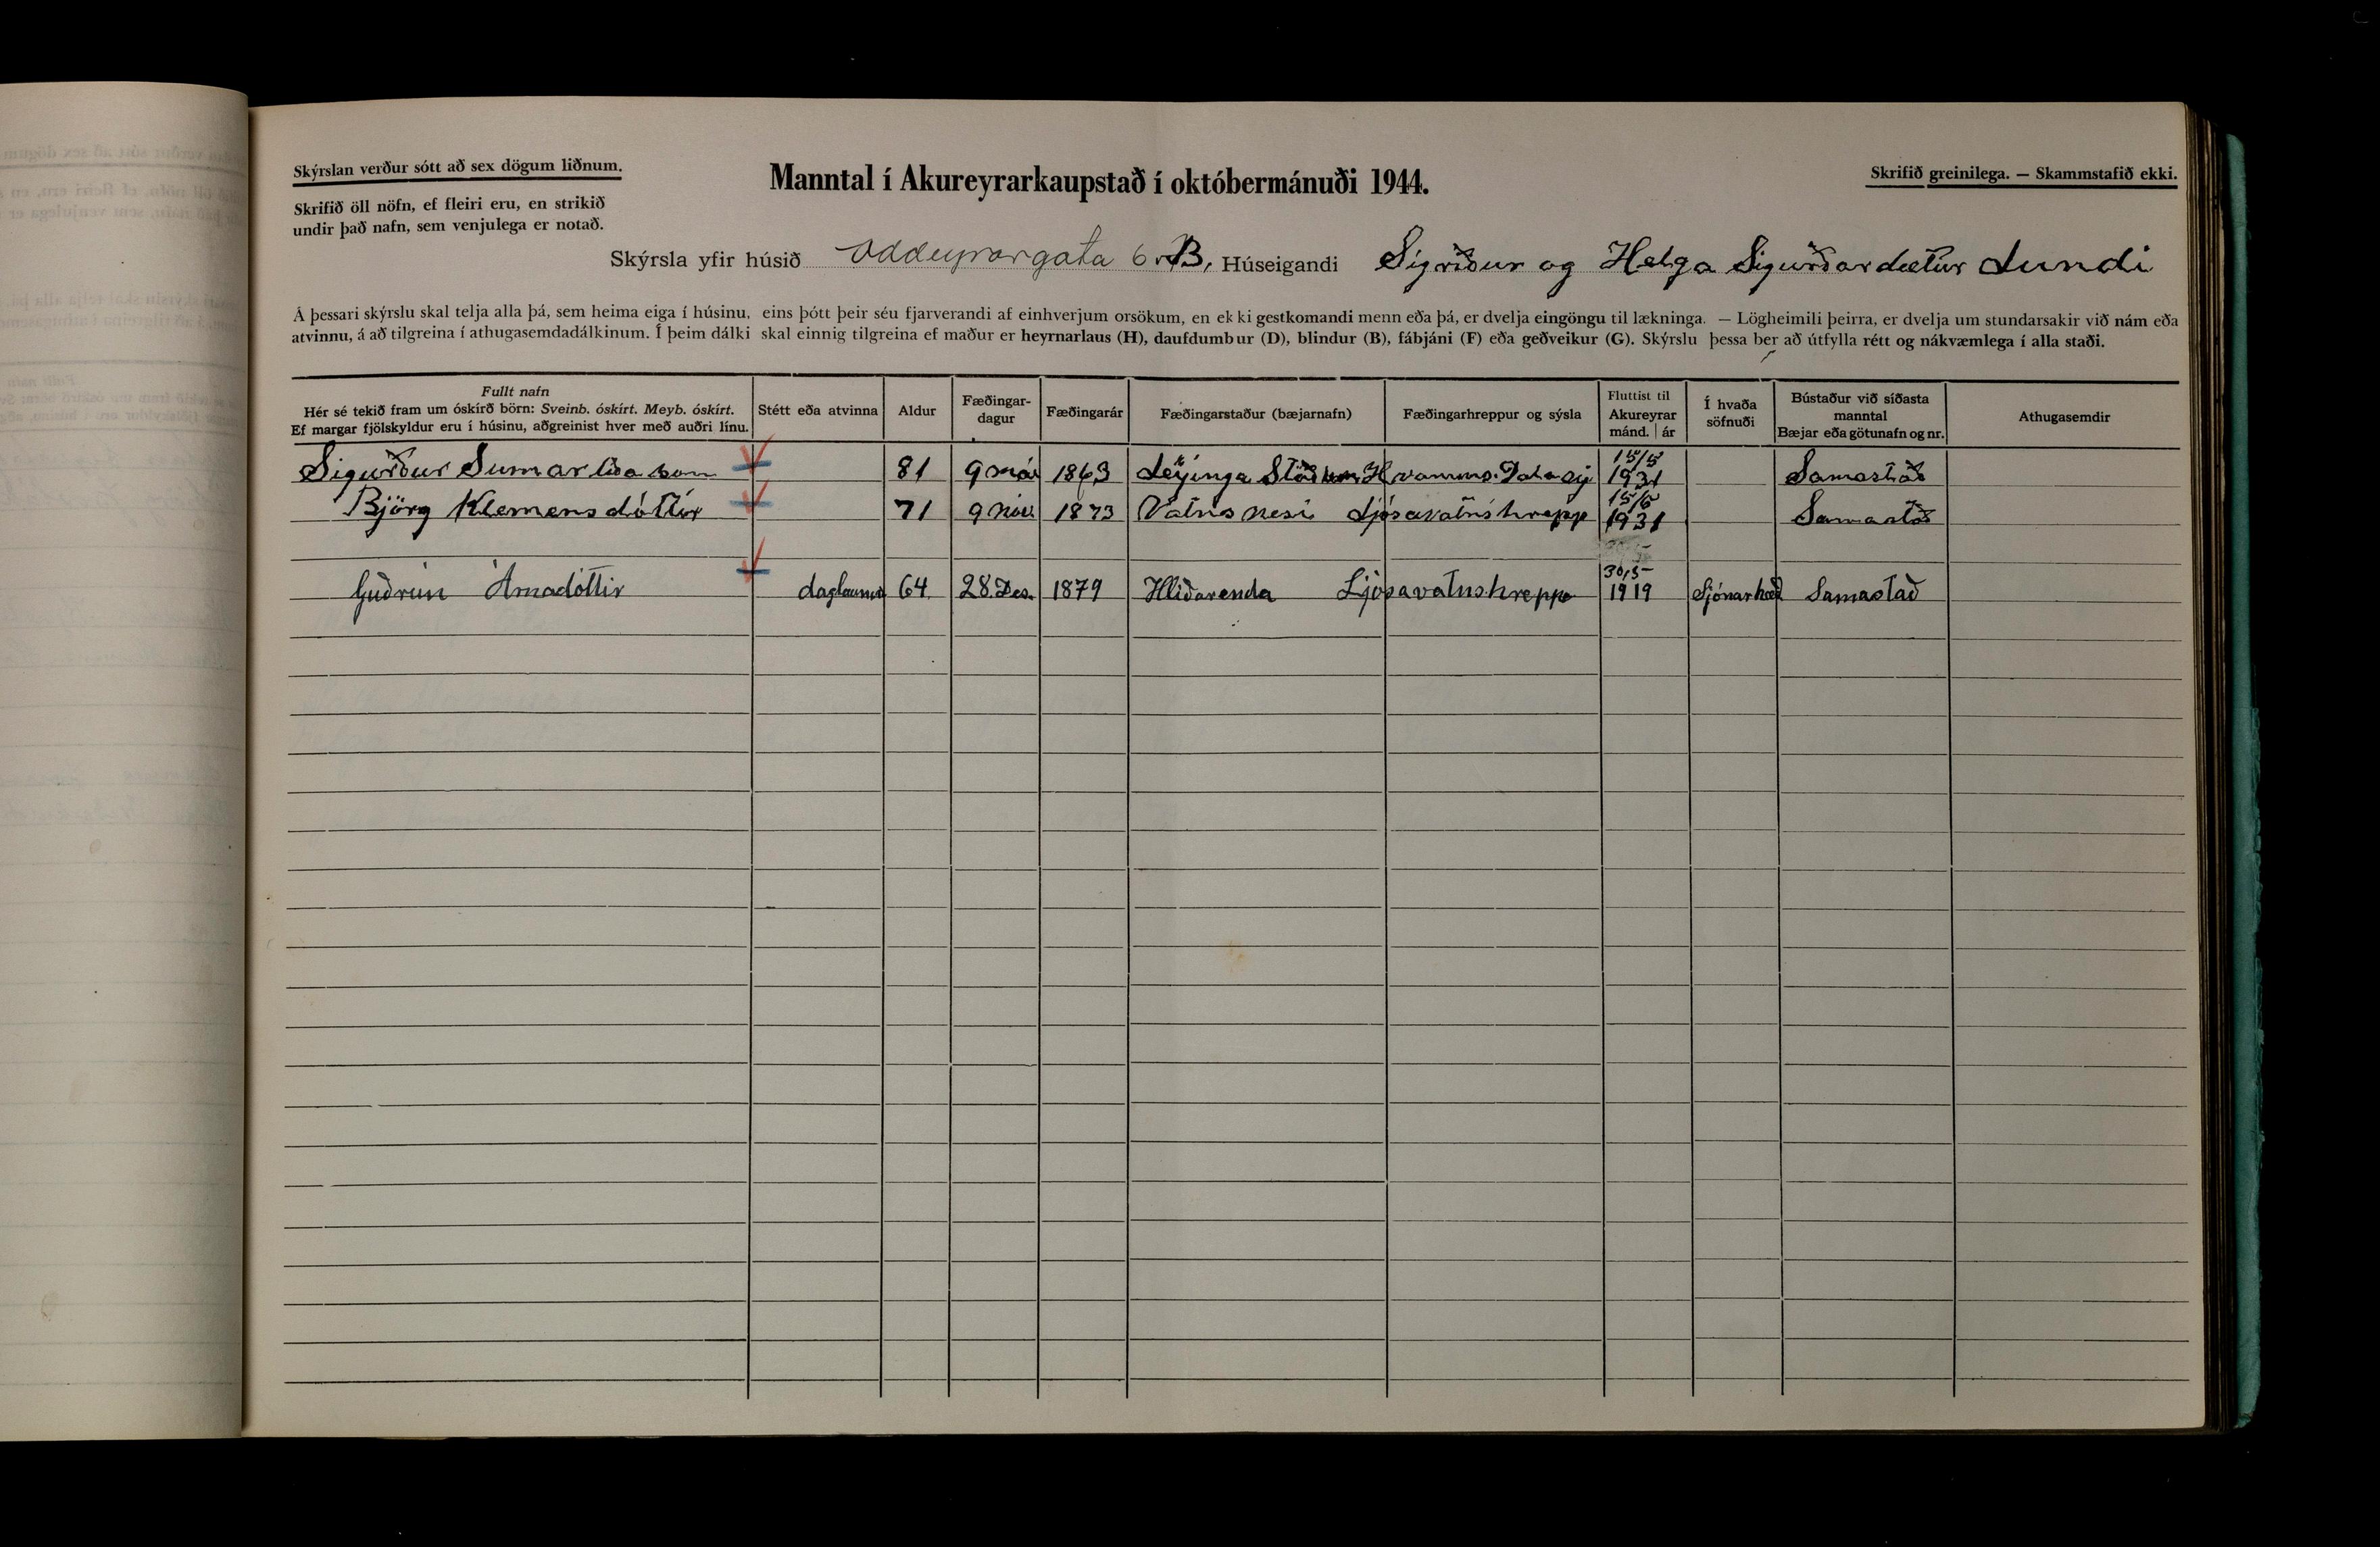 Skýrslan verður sótt að sex dögum liðnum.
Manntal í Akureyrarkaupstað í októbermánuði 1944.
Skrifið greinilega. — Skammstafið ekki.
Skrifið öll nöfn, ef fleiri eru, en strikið
undir það nafn, sem venjulega er notað.
Skýrsla yfir húsið Oddeyrargata 6 B, Húseigandi Sigríður og Helga Sigurðardætur Lundi
Á þessari skýrslu skal telja alla þá, sem heima eiga í húsinu, eins þótt þeir séu fjarverandi af einhverjum orsökum, en ekki gestkomandi menn eða þá, er dvelja eingöngu til lækninga. — Lögheimili þeirra, er dvelja um stundarsakir við nám eða
atvinnu, á að tilgreina í athugasemdadálkinum. Í þeim dálki skal einnig tilgreina ef maður er heyrnarlaus (H), daufdumbur (D), blindur (B), fábjáni (F) eða geðveikur (G). Skýrslu þessa ber að útfylla rétt og nákvæmlega í alla staði.
Fullt nafn
Hér sé tekið fram um óskírð börn: Sveinb. óskírt. Meyb. óskírt.
Ef margar fjölskyldur eru í húsinu, aðgreinist hver með auðri línu.
Stétt eða atvinna
Aldur
Fæðingar-
dagur
Fæðingarár
Fæðingarstaður (bæjarnafn)
Fæðingarhreppur og sýsla
Fluttist til
Akureyrar
mánd. | ár
Í hvaða
söfnuði
Bústaður við síðasta
manntal
Bæjar eða götunafn og nr.
Athugasemdir
Sigurður Sumarliðason 81 9 1863 Hvamms. Dalasý 15/5 1931 Samastað
Björg Klemensdóttir 71 9 nóv 1873 Vatnsnesi Ljósavatnshrepp 15/5 1931 Samastað
Guðrún Árnadóttir daglauna 64 28. Des. 1879 Hlíðarenda Ljósavatnshreppe 30/5 1919 Sjónarhæð Samastað